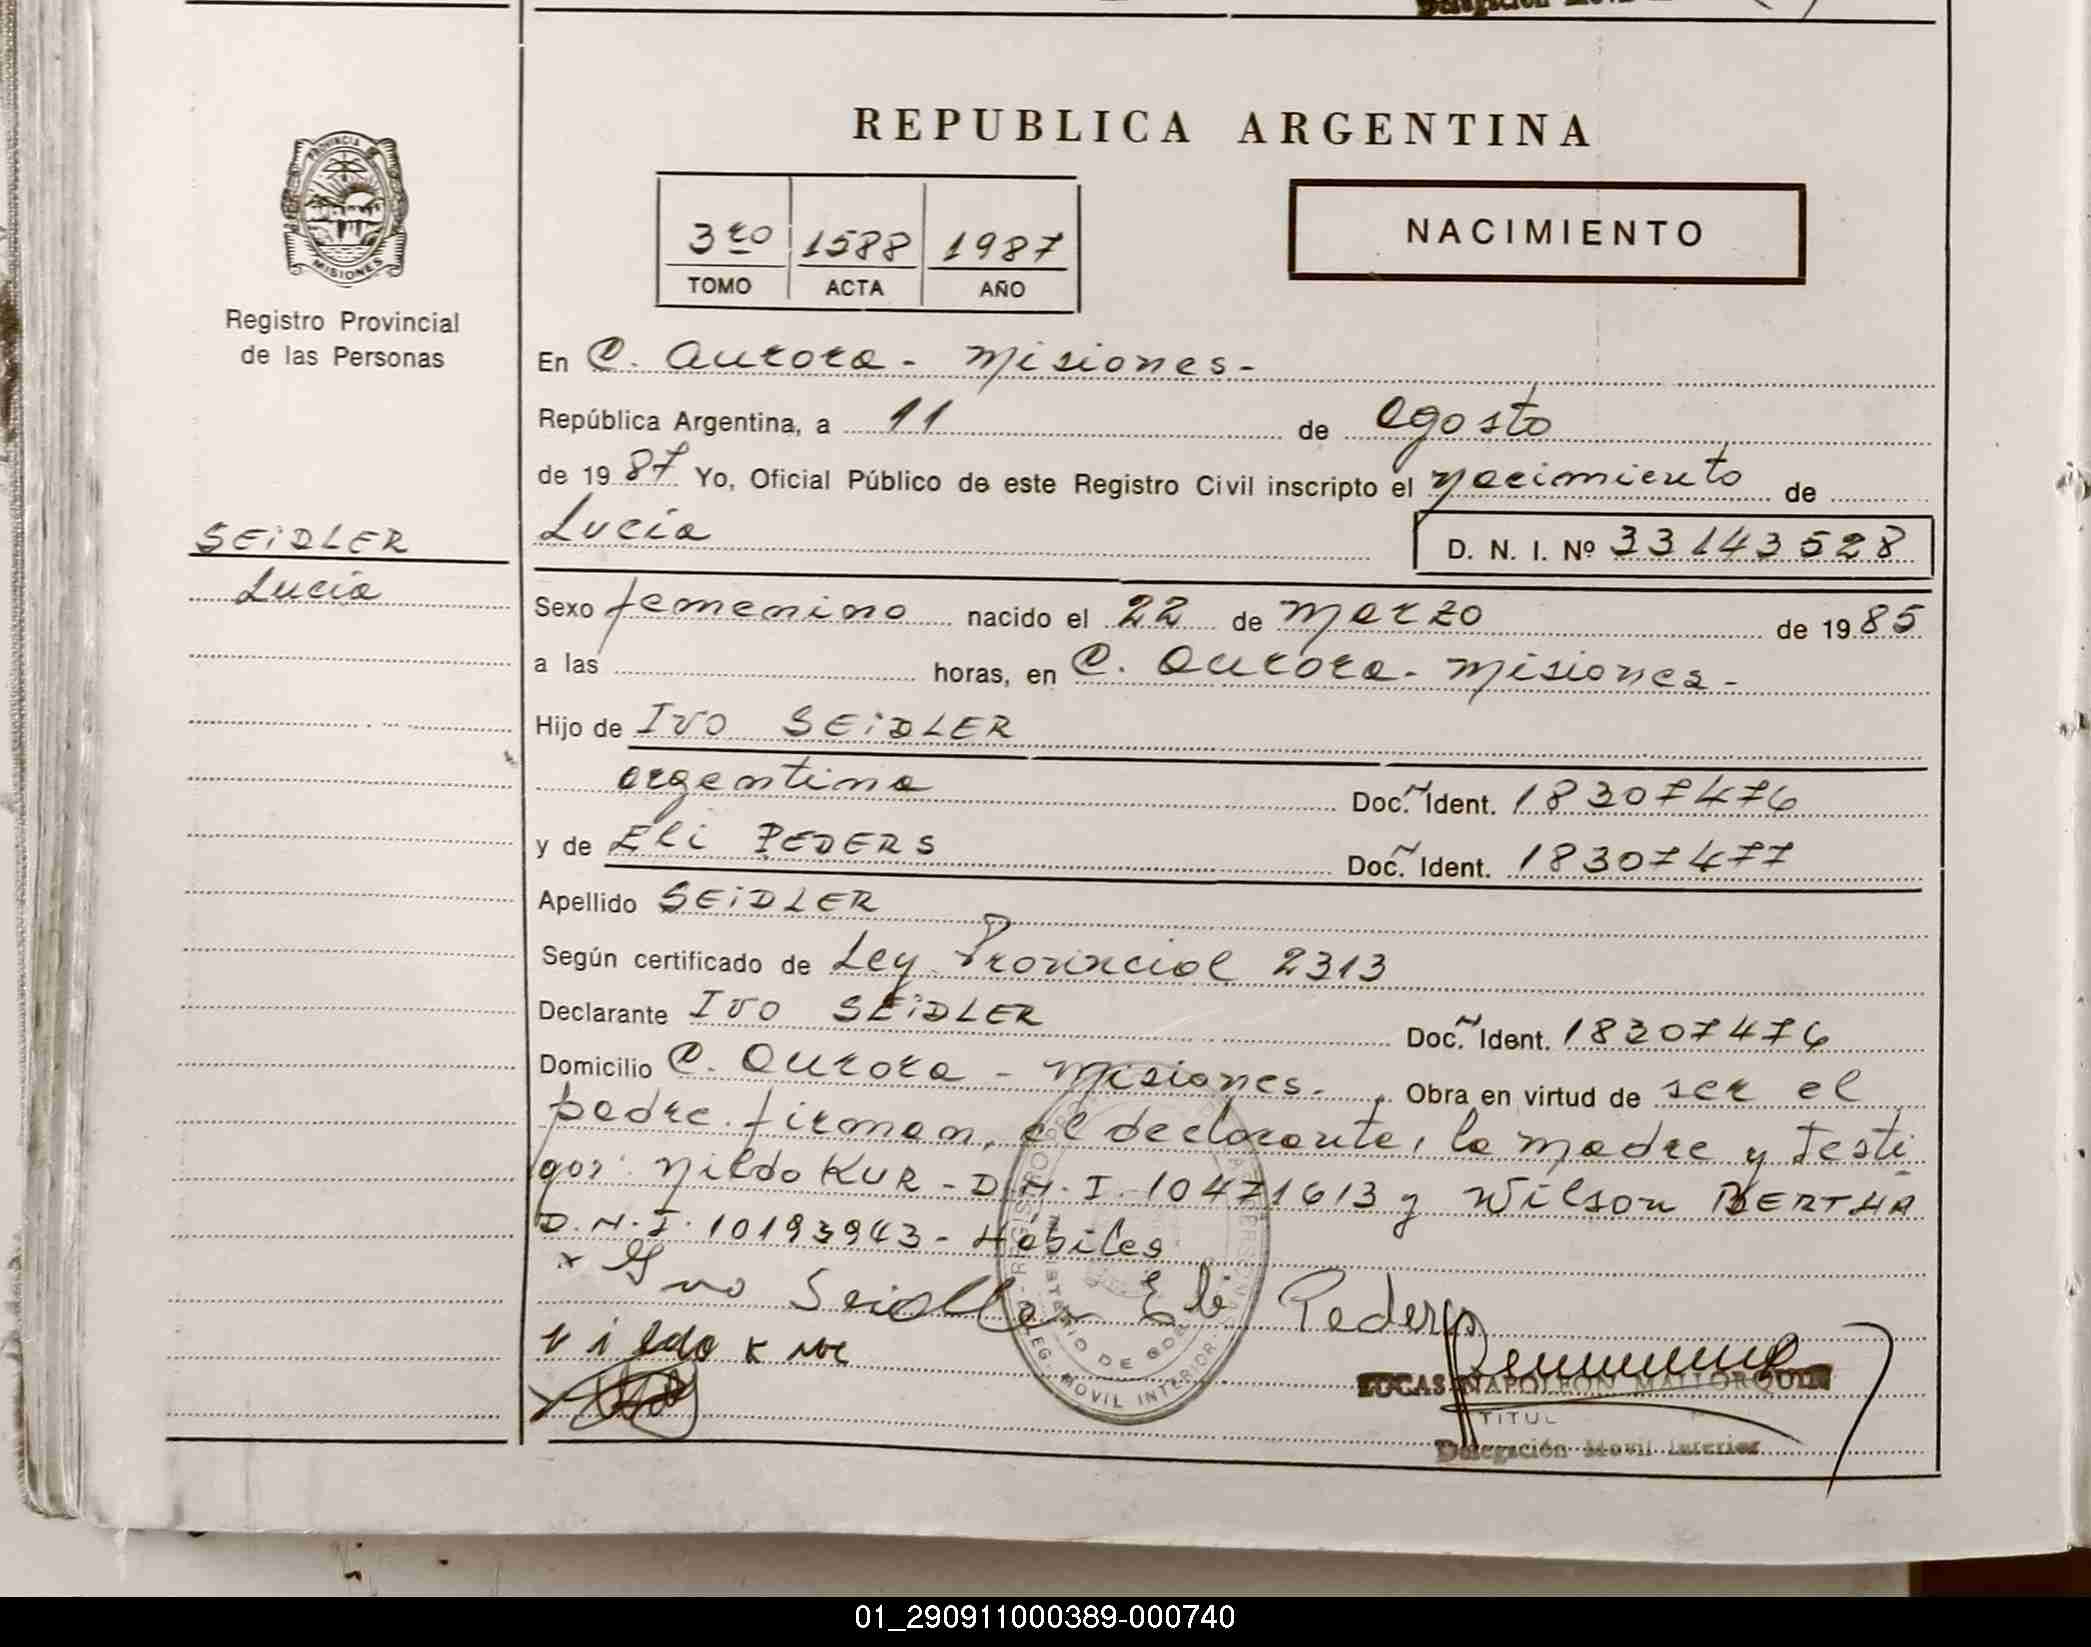 REPUBLICA ARGENTINA
PROVINCIA DE
MISIONES
Registro Provincial
de las Personas
3ro 1588 1987
TOMO ACTA AÑO
NACIMIENTO
En C. Aurora - Misiones -
República Argentina, a 11 de agosto
de 1987 Yo, Oficial Público de este Registro Civil inscripto el nacimiento de
SEIDLER
Lucía
Lucía D. N. I. Nº 33143528
Sexo femenino nacido el 22 de Marzo de 1985
a las horas, en C. Aurora - Misiones -
Hijo de Ivo SEIDLER
argentina Doc. Ident. 18307476
y de Eli PEDERS Doc. Ident. 18307477
Apellido SEIDLER
Según certificado de Ley Provincial 2313
Declarante Ivo SEIDLER Doc. Ident. 18307476
Domicilio C. Aurora - Misiones - Obra en virtud de ser el
padre. firman, el declarante, la madre y testi
gos: Nildo KUR - D.N.I. 10471613 y Wilson BERTHA
D.N.I. 10193943 - Hábiles
x Ivo Seidler Eli Peders
Nildo Kur
LUCAS NAPOLEON MALLORQUIN
TITUL
Delegación Movil Interior
MOVIL INTERIOR
01_290911000389-000740